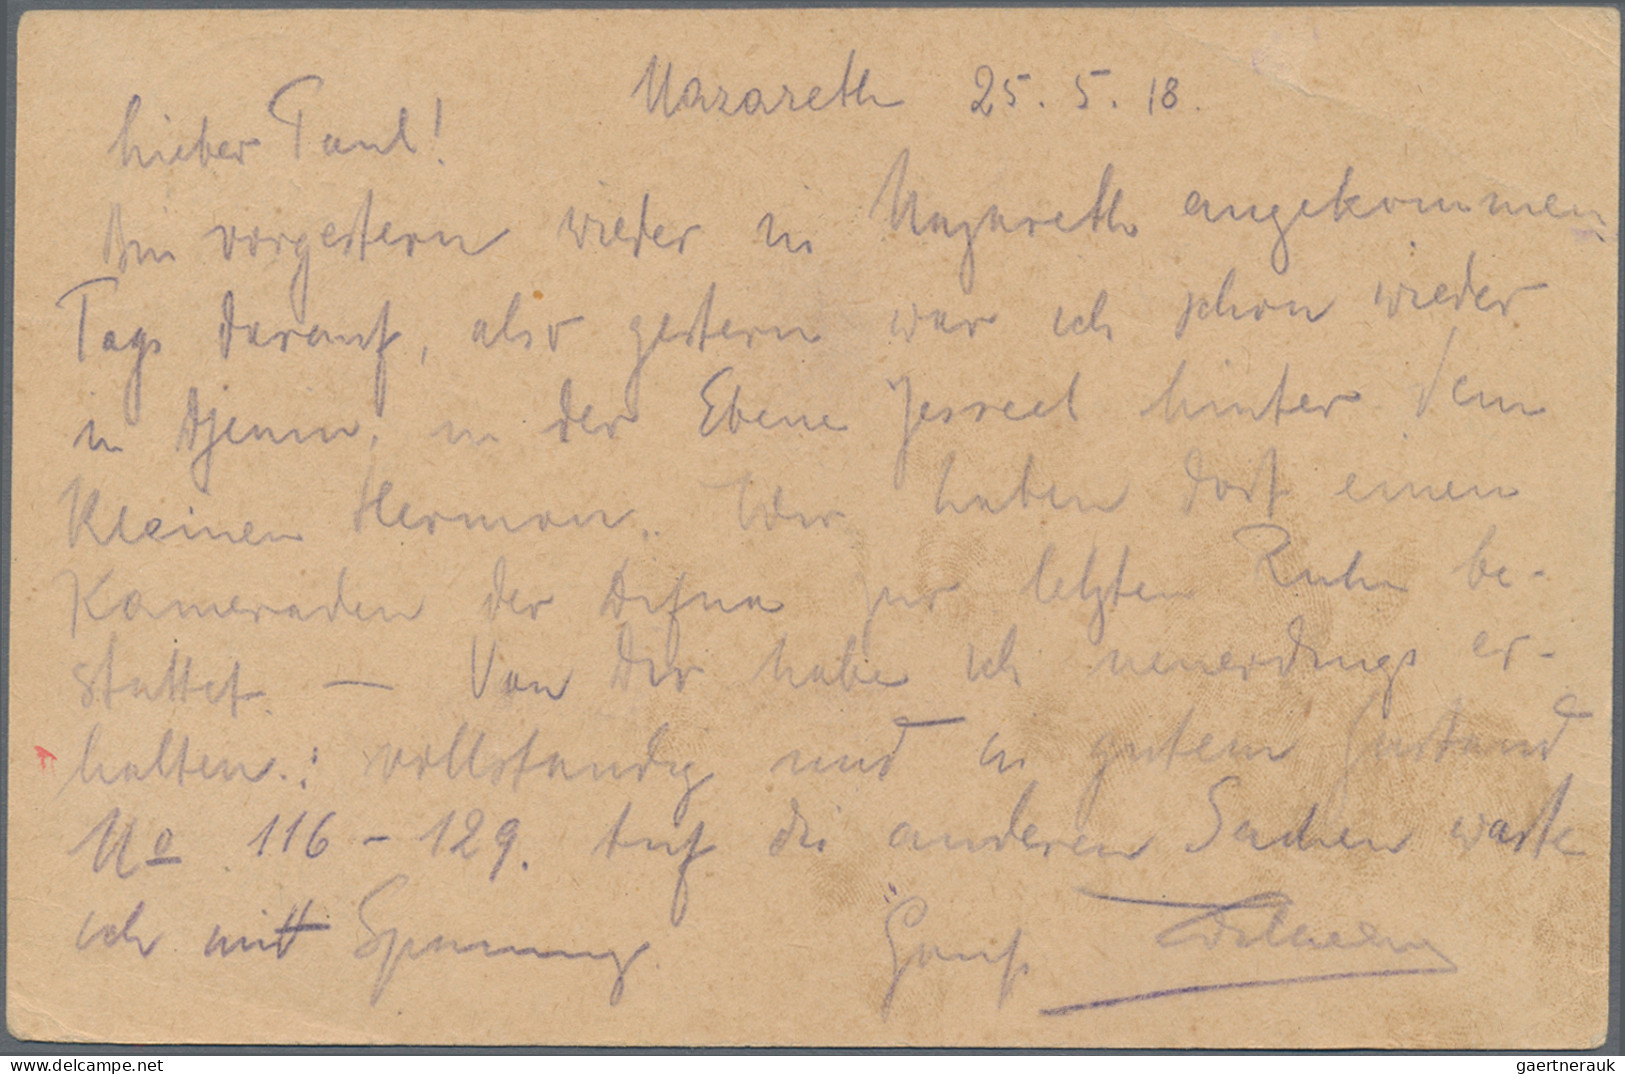 Nazareth 25. 5. 18.
Lieber Paul!
Bin vorgestern wieder in Nazareth angekommen
Tags darauf, also gestern war ich schon wieder
in Djenin, in der Ebene Jesreel hinter dem
Kleinen Hermon. Wir haben dort einen
Kameraden der zur letzten Ruhe be-
stattet. — Von Dir habe ich neuerdings er-
halten.: vollständig und in gutem Zustand
No 116 - 129. Auf die anderen Sachen warte
ich mit Spannung. Gruß
www.delcampe.net
gaertnerauk